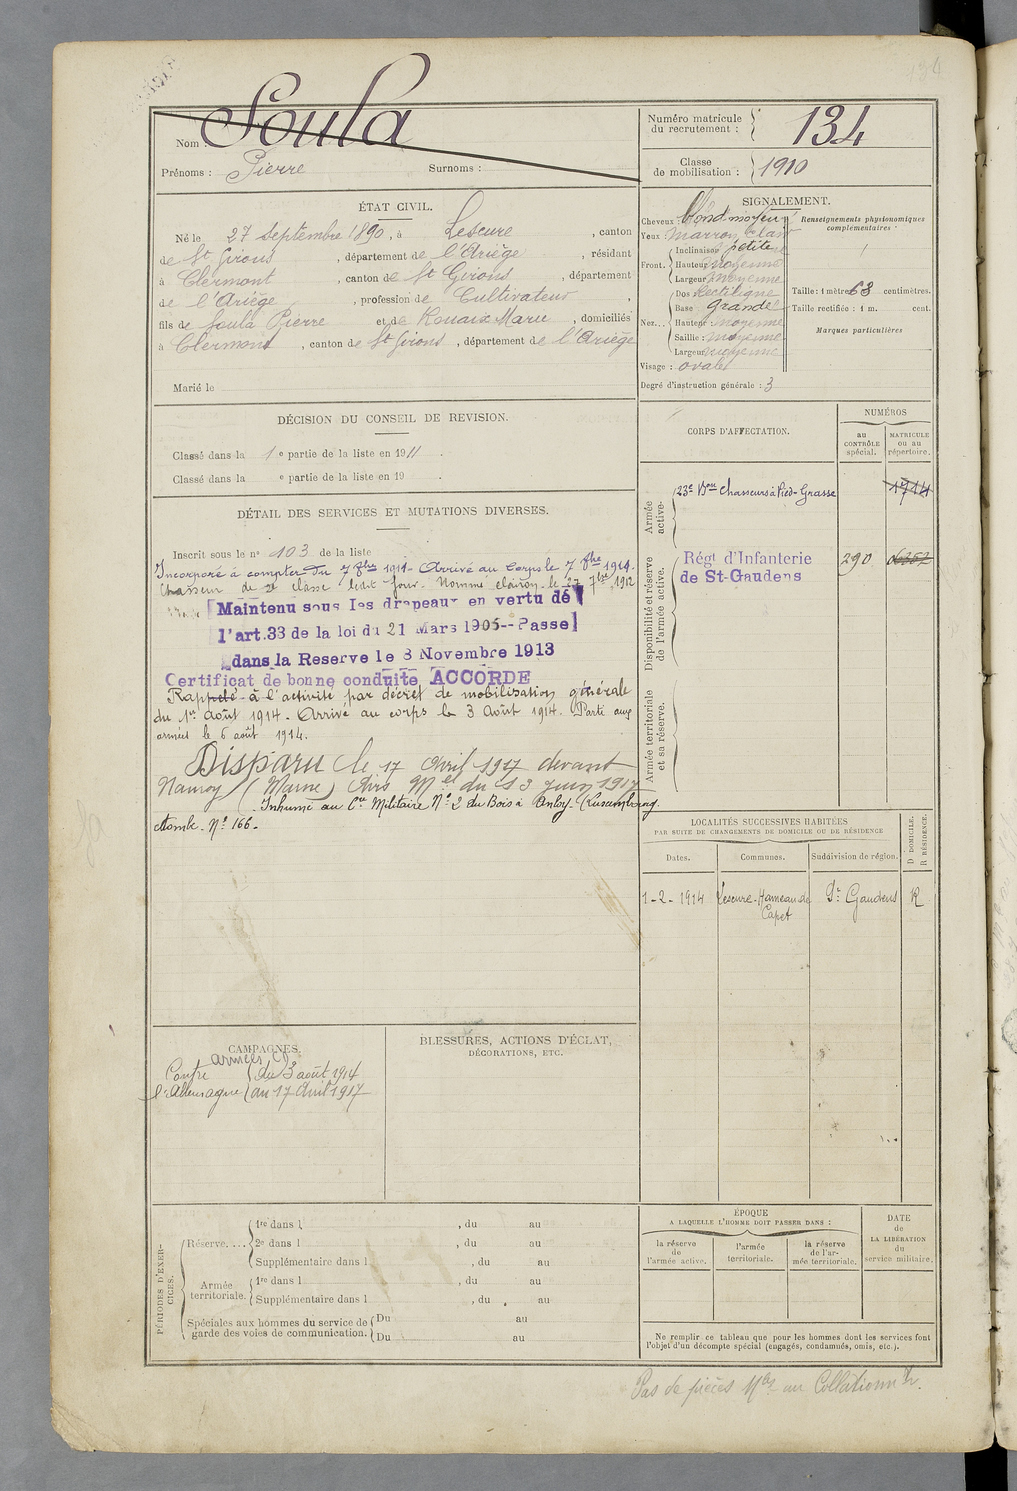 134
Nom : Soula
Prénoms : Pierre Surnoms :
Numéro matricule du recrutement : 134
Classe de mobilisation : 1910
ÉTAT CIVIL.
Né le 27 septembre 1890, à Lescure, canton
de St Girons, département de l'Ariège, résidant
à Clermont, canton de St Girons, département
de l'Ariège, profession de Cultivateur,
fils de Soula Pierre et de Rouaix Marie, domiciliés
à Clermont, canton de St Girons, département de l'Ariège
Marié le
SIGNALEMENT.
Cheveux blond moyen
Yeux marron clair
Front. Inclinaison petite
Hauteur moyenne
Largeur moyenne
Nez... Dos rectiligne
Base grande
Hauteur : moyenne
Saillie : moyenne
Largeur moyenne
Visage : ovale
Renseignements physionomiques complémentaires :
Taille : 1 mètre 63 centimètres.
Taille rectifiée : 1 m. cent.
Marques particulières
Degré d'instruction générale : 3
DÉCISION DU CONSEIL DE REVISION.
Classé dans la 1 e partie de la liste en 1911.
Classé dans la e partie de la liste en 19 .
DÉTAIL DES SERVICES ET MUTATIONS DIVERSES.
Inscrit sous le n° 103 de la liste
Incorporé à compter du 7 8bre 1911. Arrivé au corps le 7 8bre 1911.
Chasseur de 2e classe ledit jour. Nommé clairon le 27 7bre 1912
Maintenu sous les drapeaux en vertu de
l'art. 33 de la loi du 21 Mars 1905 -- Passe
dans la Reserve le 8 Novembre 1913
Certificat de bonne conduite ACCORDE
Rappelé à l'activité par décret de mobilisation générale
du 1er août 1914. Arrivé au corps le 3 Août 1914. Parti aux
armées le 6 août 1914.
Disparu le 17 Avril 1917 devant
Nauroy (Marne) Avis Mel du 13 Juin 1917
Inhumé au Cre Militaire N° 2 du Bois à Anloy. (Luxembourg
tombe N° 166.
CORPS D'AFFECTATION.
NUMÉROS
au CONTRÔLE spécial.
MATRICULE ou au répertoire.
Armée active.
23e Bon Chasseurs à Pied - Grasse 1714
Disponibilité et réserve de l'armée active.
Régt d'Infanterie 290
de St-Gaudens
Armée territoriale et sa réserve.
LOCALITÉS SUCCESSIVES HABITÉES
PAR SUITE DE CHANGEMENTS DE DOMICILE OU DE RÉSIDENCE
Dates. Communes. Subdivision de région. D DOMICILE. R RÉSIDENCE.
1-2-1914 Lescure-Hameau de St Gaudens R
Capet
CAMPAGNES.
armées
Contre du 3 août 1914
l'Allemagne au 17 Avril 1917
BLESSURES, ACTIONS D'ÉCLAT,
DÉCORATIONS, ETC.
PÉRIODES D'EXERCICES.
Réserve.... 1re dans l , du au
2e dans l , du au
Supplémentaire dans l , du au
Armée territoriale. 1re dans l , du au
Supplémentaire dans l , du au
Spéciales aux hommes du service de garde des voies de communication. Du au
Du au
ÉPOQUE
A LAQUELLE L'HOMME DOIT PASSER DANS :
la réserve de l'armée active.
l'armée territoriale.
la réserve de l'armée territoriale.
DATE de LA LIBÉRATION du service militaire.
Ne remplir ce tableau que pour les hommes dont les services font
l'objet d'un décompte spécial (engagés, condamnés, omis, etc.).
Pas de pièces Mles au Collationnt